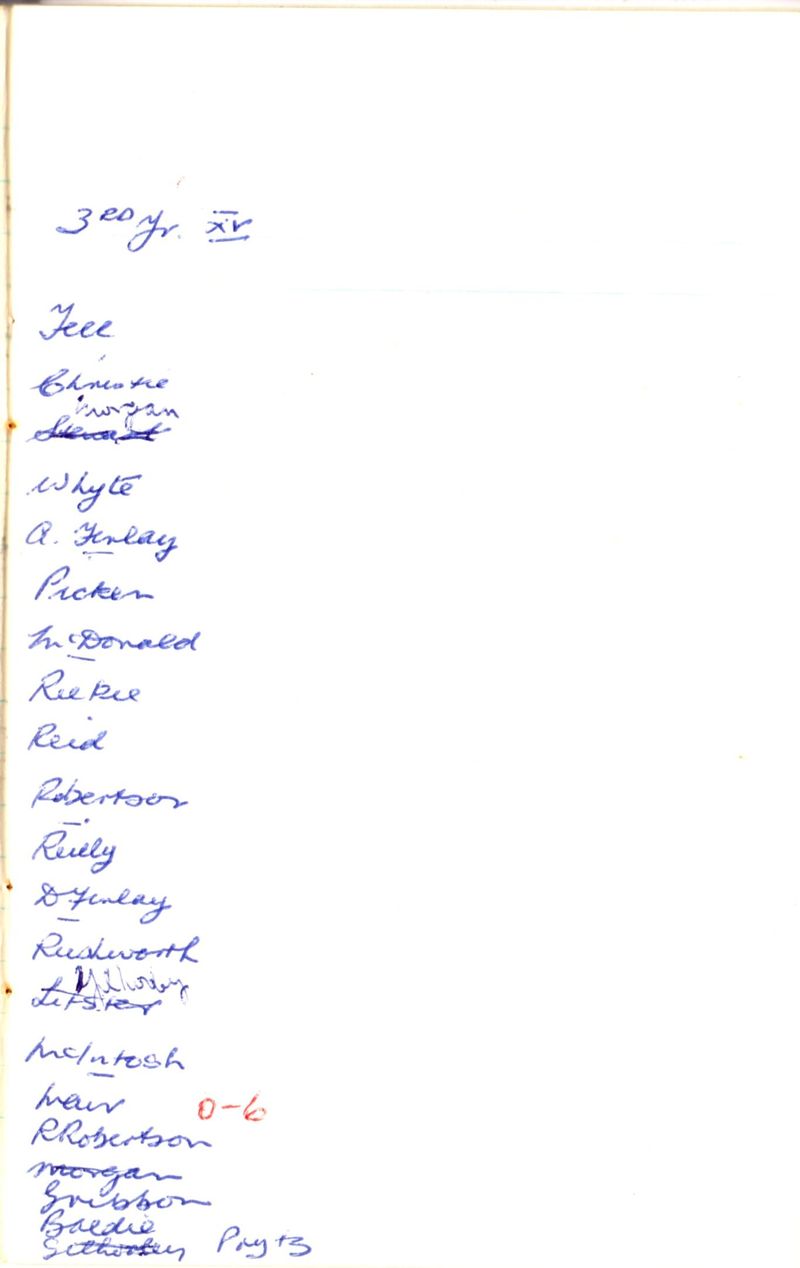 3RD Yr. XV
Fell
Christie
Morgan
Stewart
Whyte
A. Finlay
Picken
McDonald
Reekie
Reid
Robertson
Reilly
D Finlay
Rushworth
Litster
McIntosh
Mair 0-6
R Robertson
Morgan
Gribbon
Baldie